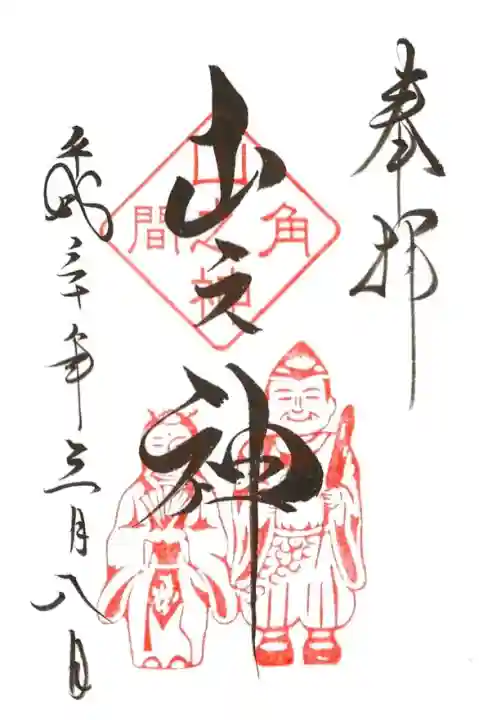 奉拝
山之神
角
山之神
間
平成三十年三月八日